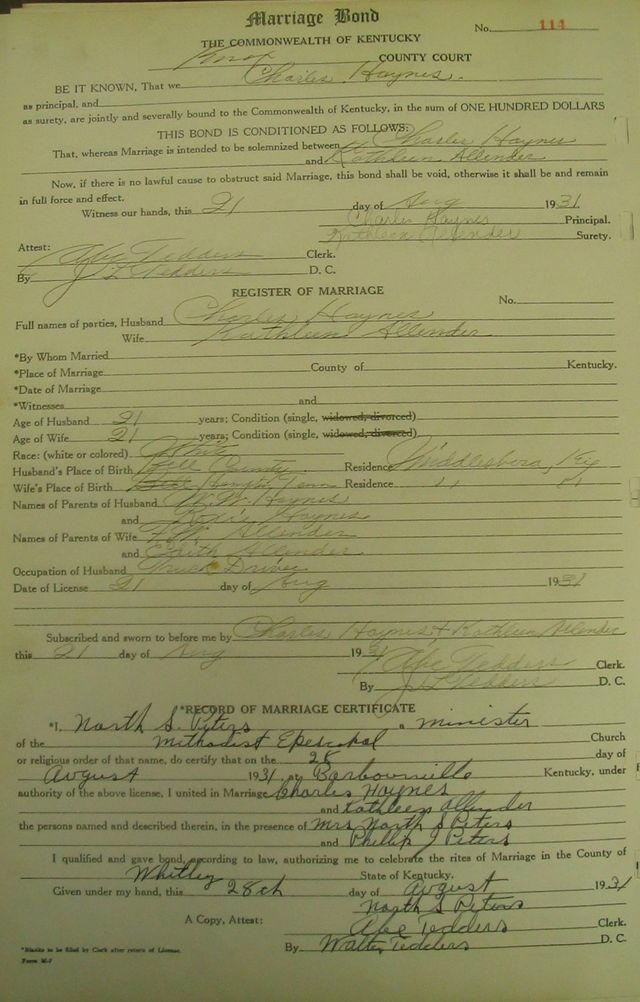 Marriage Bond
No. 114
THE COMMONWEALTH OF KENTUCKY
Knox COUNTY COURT
BE IT KNOWN, That we Charles Haynes.
as principal, and
as surety, are jointly and severally bound to the Commonwealth of Kentucky, in the sum of ONE HUNDRED DOLLARS
THIS BOND IS CONDITIONED AS FOLLOWS:
That, whereas Marriage is intended to be solemnized between Charles Haynes
and Kathleen Allender
Now, if there is no lawful cause to obstruct said Marriage, this bond shall be void, otherwise it shall be and remain
in full force and effect.
Witness our hands, this 21 day of Aug 1931
Charles Haynes Principal.
Kathleen Allender Surety.
Attest:
Abe Tedders Clerk.
By J L Tedders D. C.
REGISTER OF MARRIAGE
No.
Full names of parties, Husband Charles Haynes
Wife Kathleen Allender
*By Whom Married
*Place of Marriage County of Kentucky.
*Date of Marriage
*Witnesses and
Age of Husband 21 years; Condition (single, widowed, divorced)
Age of Wife 21 years; Condition (single, widowed, divorced)
Race: (white or colored) White
Husband's Place of Birth Bell County Residence Middlesboro, Ky
Wife's Place of Birth Tenn Residence " "
Names of Parents of Husband W. W. Haynes
and Haynes
Names of Parents of Wife Allender
and Edith Allender
Occupation of Husband Truck Driver
Date of License 21 day of Aug 1931
Subscribed and sworn to before me by Charles Haynes + Kathleen Allender
this 21 day of Aug 1931
Abe Tedders Clerk.
By J L Tedders D. C.
*RECORD OF MARRIAGE CERTIFICATE
*I, North S. Peters a minister
of the Methodist Episcopal Church
or religious order of that name, do certify that on the 28 day of
August 1931 at Barbourville Kentucky, under
authority of the above license, I united in Marriage Charles Haynes
and Kathleen Allender
the persons named and described therein, in the presence of Mrs North S Peters
and Phillip J Peters
I qualified and gave bond, according to law, authorizing me to celebrate the rites of Marriage in the County of
Whitley State of Kentucky.
Given under my hand, this 28th day of August 1931
North S Peters
A Copy, Attest: Abe Tedders Clerk.
By Walter Tedders D. C.
*Blanks to be filled by Clerk after return of License.
Form M-7